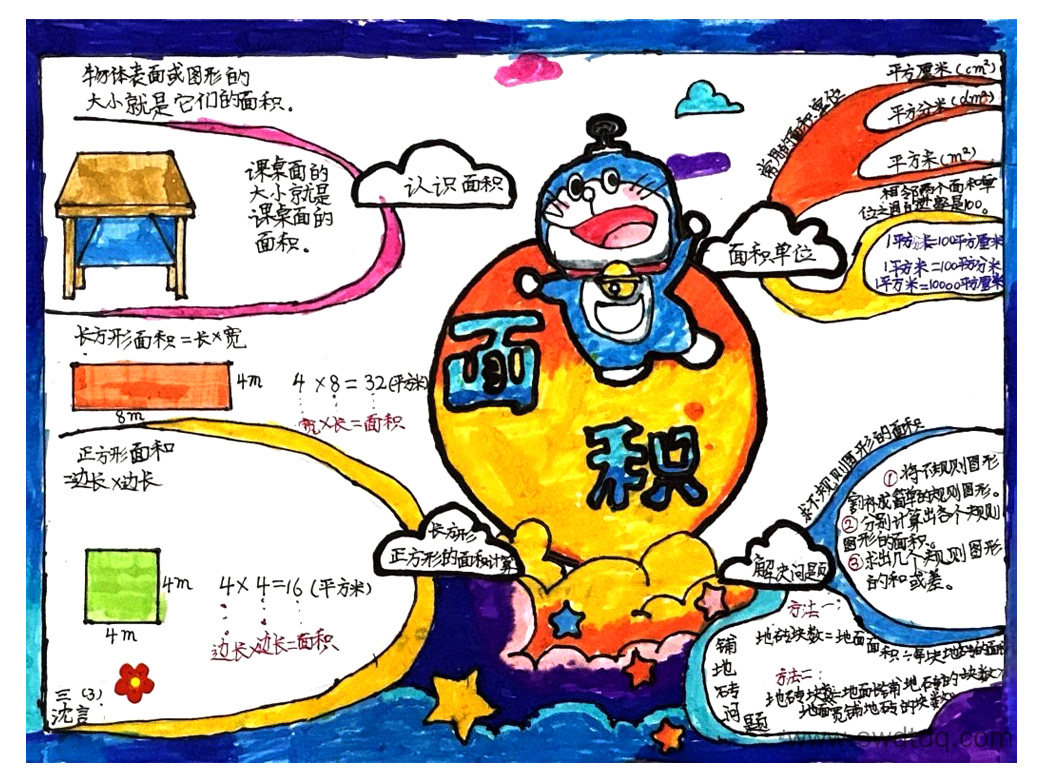 物体表面或图形的
大小就是它们的面积。
课桌面的
大小就是
课桌面的
面积。
认识面积
长方形面积=长×宽
4m
8m
4×8=32(平方米)
宽×长=面积
正方形面积
=边长×边长
4m
4m
4×4=16(平方米)
边长×边长=面积
长方形
正方形的面积计算
三(3)
沈言
面积
常用的面积单位
平方厘米(cm²)
平方分米(dm²)
平方米(m²)
相邻两个面积单
位之间的进率是100。
面积单位
1平方米=100平方厘米
1平方米=100平方分米
1平方米=10000平方厘米
求不规则图形的面积
①将不规则图形
割补成简单的规则图形。
②分别计算出各个规则
图形的面积。
③求出几个规则图形
的和或差。
解决问题
铺地砖问题
方法一:
地砖块数=地面面积÷每块地砖的面积
方法二:
地砖块数=地面长铺地砖的块数×
地面宽铺地砖的块数